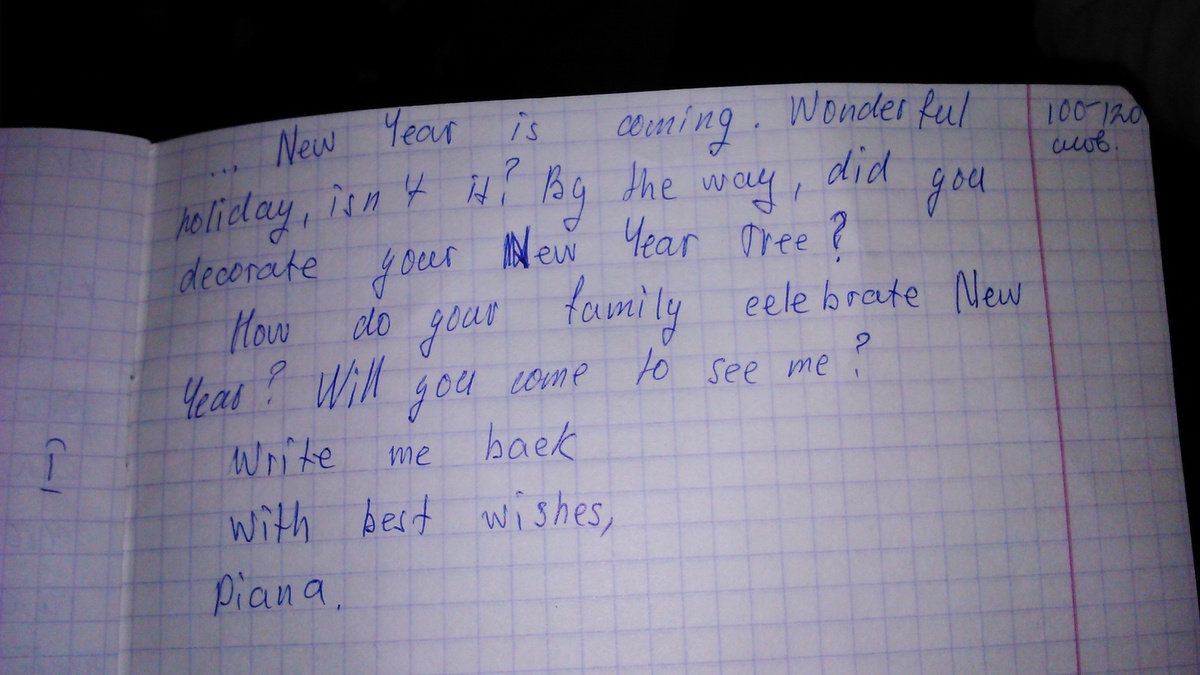 ... New Year is coming. Wonderful
holiday, isn't it? By the way, did you
decorate your New Year Tree?
How do your family celebrate New
Year? Will you come to see me?
Write me back
With best wishes,
Diana.
100-120
слов.
I